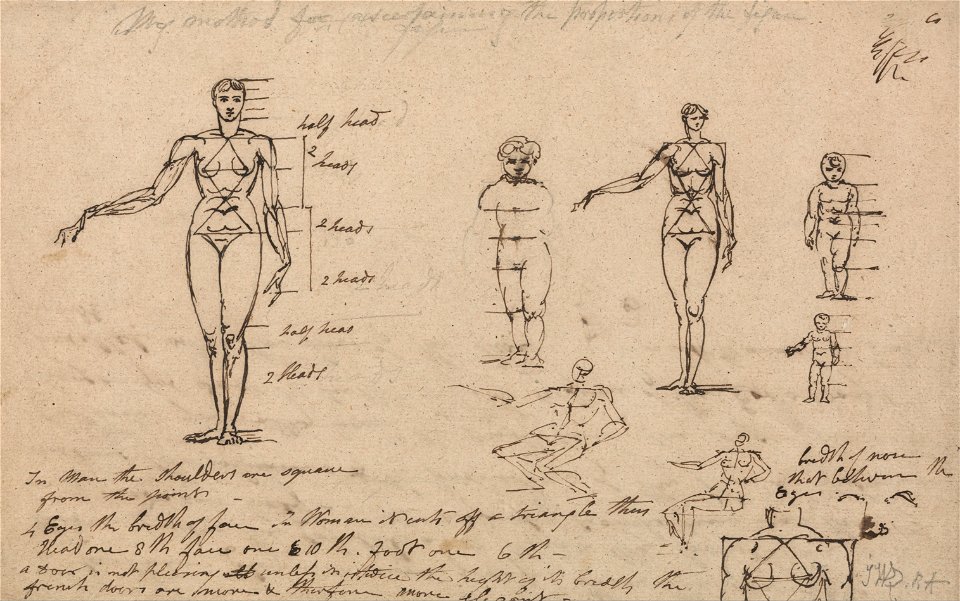 My method for ascertaining the proportions of the figure
half head
2
heads
2 heads
2 heads
half head
2 Heads
In Man the shoulders are square
from the points
bredth of nose
that between the
Eyes
4 Eyes the bredth of face in Woman it cuts off a triangle thus
Head one 8th face one 10th. Foot one 6th
a Door is not pleasing unless it is twice the hight of its bredth the
french doors are more & therefore more